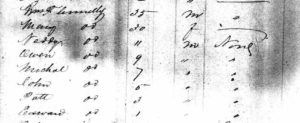 Connelly 35 m "
Mary do 30 f "
Neddy do 11 m None
Owen do 9 " "
Michal do 7 " "
John do 5 " "
Patt do 3 " "
Edward do 1 " "